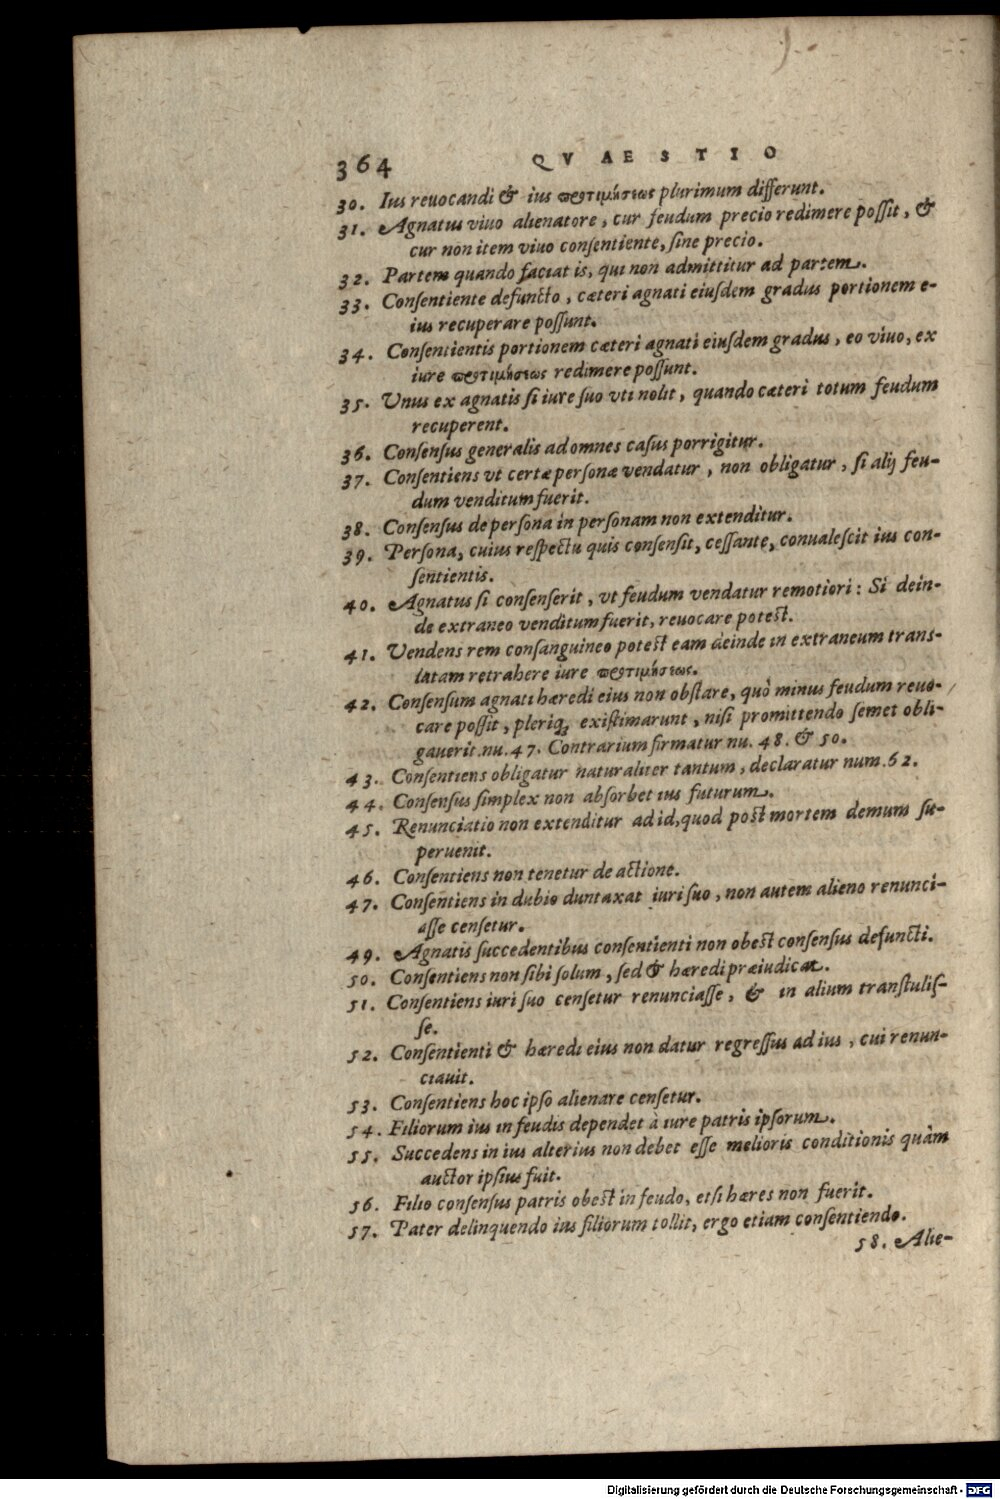 364 QVAESTIO
30. Ius reuocandi & ius προτιμήσεως plurimum differunt.
31. Agnatus viuo alienatore, cur feudum precio redimere poſſit, &
cur non item viuo conſentiente, ſine precio.
32. Partem quando faciat is, qui non admittitur ad partem.
33. Conſentiente defuncto, cæteri agnati eiuſdem gradus portionem e-
ius recuperare poſſunt.
34. Conſentientis portionem cæteri agnati eiuſdem gradus, eo viuo, ex
iure προτιμήσεως redimere poſſunt.
35. Unus ex agnatis ſi iure ſuo vti nolit, quando cæteri totum feudum
recuperent.
36. Conſenſus generalis ad omnes caſus porrigitur.
37. Conſentiens vt certæ perſonæ vendatur, non obligatur, ſi alij feu-
dum venditum fuerit.
38. Conſenſus de perſona in perſonam non extenditur.
39. Perſona, cuius reſpectu quis conſenſit, ceſſante, conualeſcit ius con-
ſentientis.
40. Agnatus ſi conſenſerit, vt feudum vendatur remotiori: Si dein-
de extraneo venditum fuerit, reuocare poteſt.
41. Vendens rem conſanguineo poteſt eam deinde in extraneum trans-
latam retrahere iure προτιμήσεως.
42. Conſenſum agnati hæredi eius non obſtare, quò minus feudum reuo-
care poſſit, pleriq; exiſtimarunt, niſi promittendo ſemet obli-
gauerit. nu. 47. Contrarium firmatur nu. 48. & 50.
43. Conſentiens obligatur naturaliter tantum, declaratur num. 62.
44. Conſenſus ſimplex non abſorbet ius futurum.
45. Renunciatio non extenditur ad id, quod poſt mortem demum ſu-
peruenit.
46. Conſentiens non tenetur de actione.
47. Conſentiens in dubio duntaxat iuri ſuo, non autem alieno renunci-
aſſe cenſetur.
49. Agnatis ſuccedentibus conſentienti non obeſt conſenſus defuncti.
50. Conſentiens non ſibi ſolum, ſed & hæredi præiudicat.
51. Conſentiens iuri ſuo cenſetur renunciaſſe, & in alium tranſtuliſ-
ſe.
52. Conſentienti & hæredi eius non datur regreſſus ad ius, cui renun-
ciauit.
53. Conſentiens hoc ipſo alienare cenſetur.
54. Filiorum ius in feudis dependet à iure patris ipſorum.
55. Succedens in ius alterius non debet eſſe melioris conditionis quàm
auctor ipſius fuit.
56. Filio conſenſus patris obeſt in feudo, etſi hæres non fuerit.
57. Pater delinquendo ius filiorum tollit, ergo etiam conſentiendo.
58. Alie-
Digitalisierung gefördert durch die Deutsche Forschungsgemeinschaft - DFG